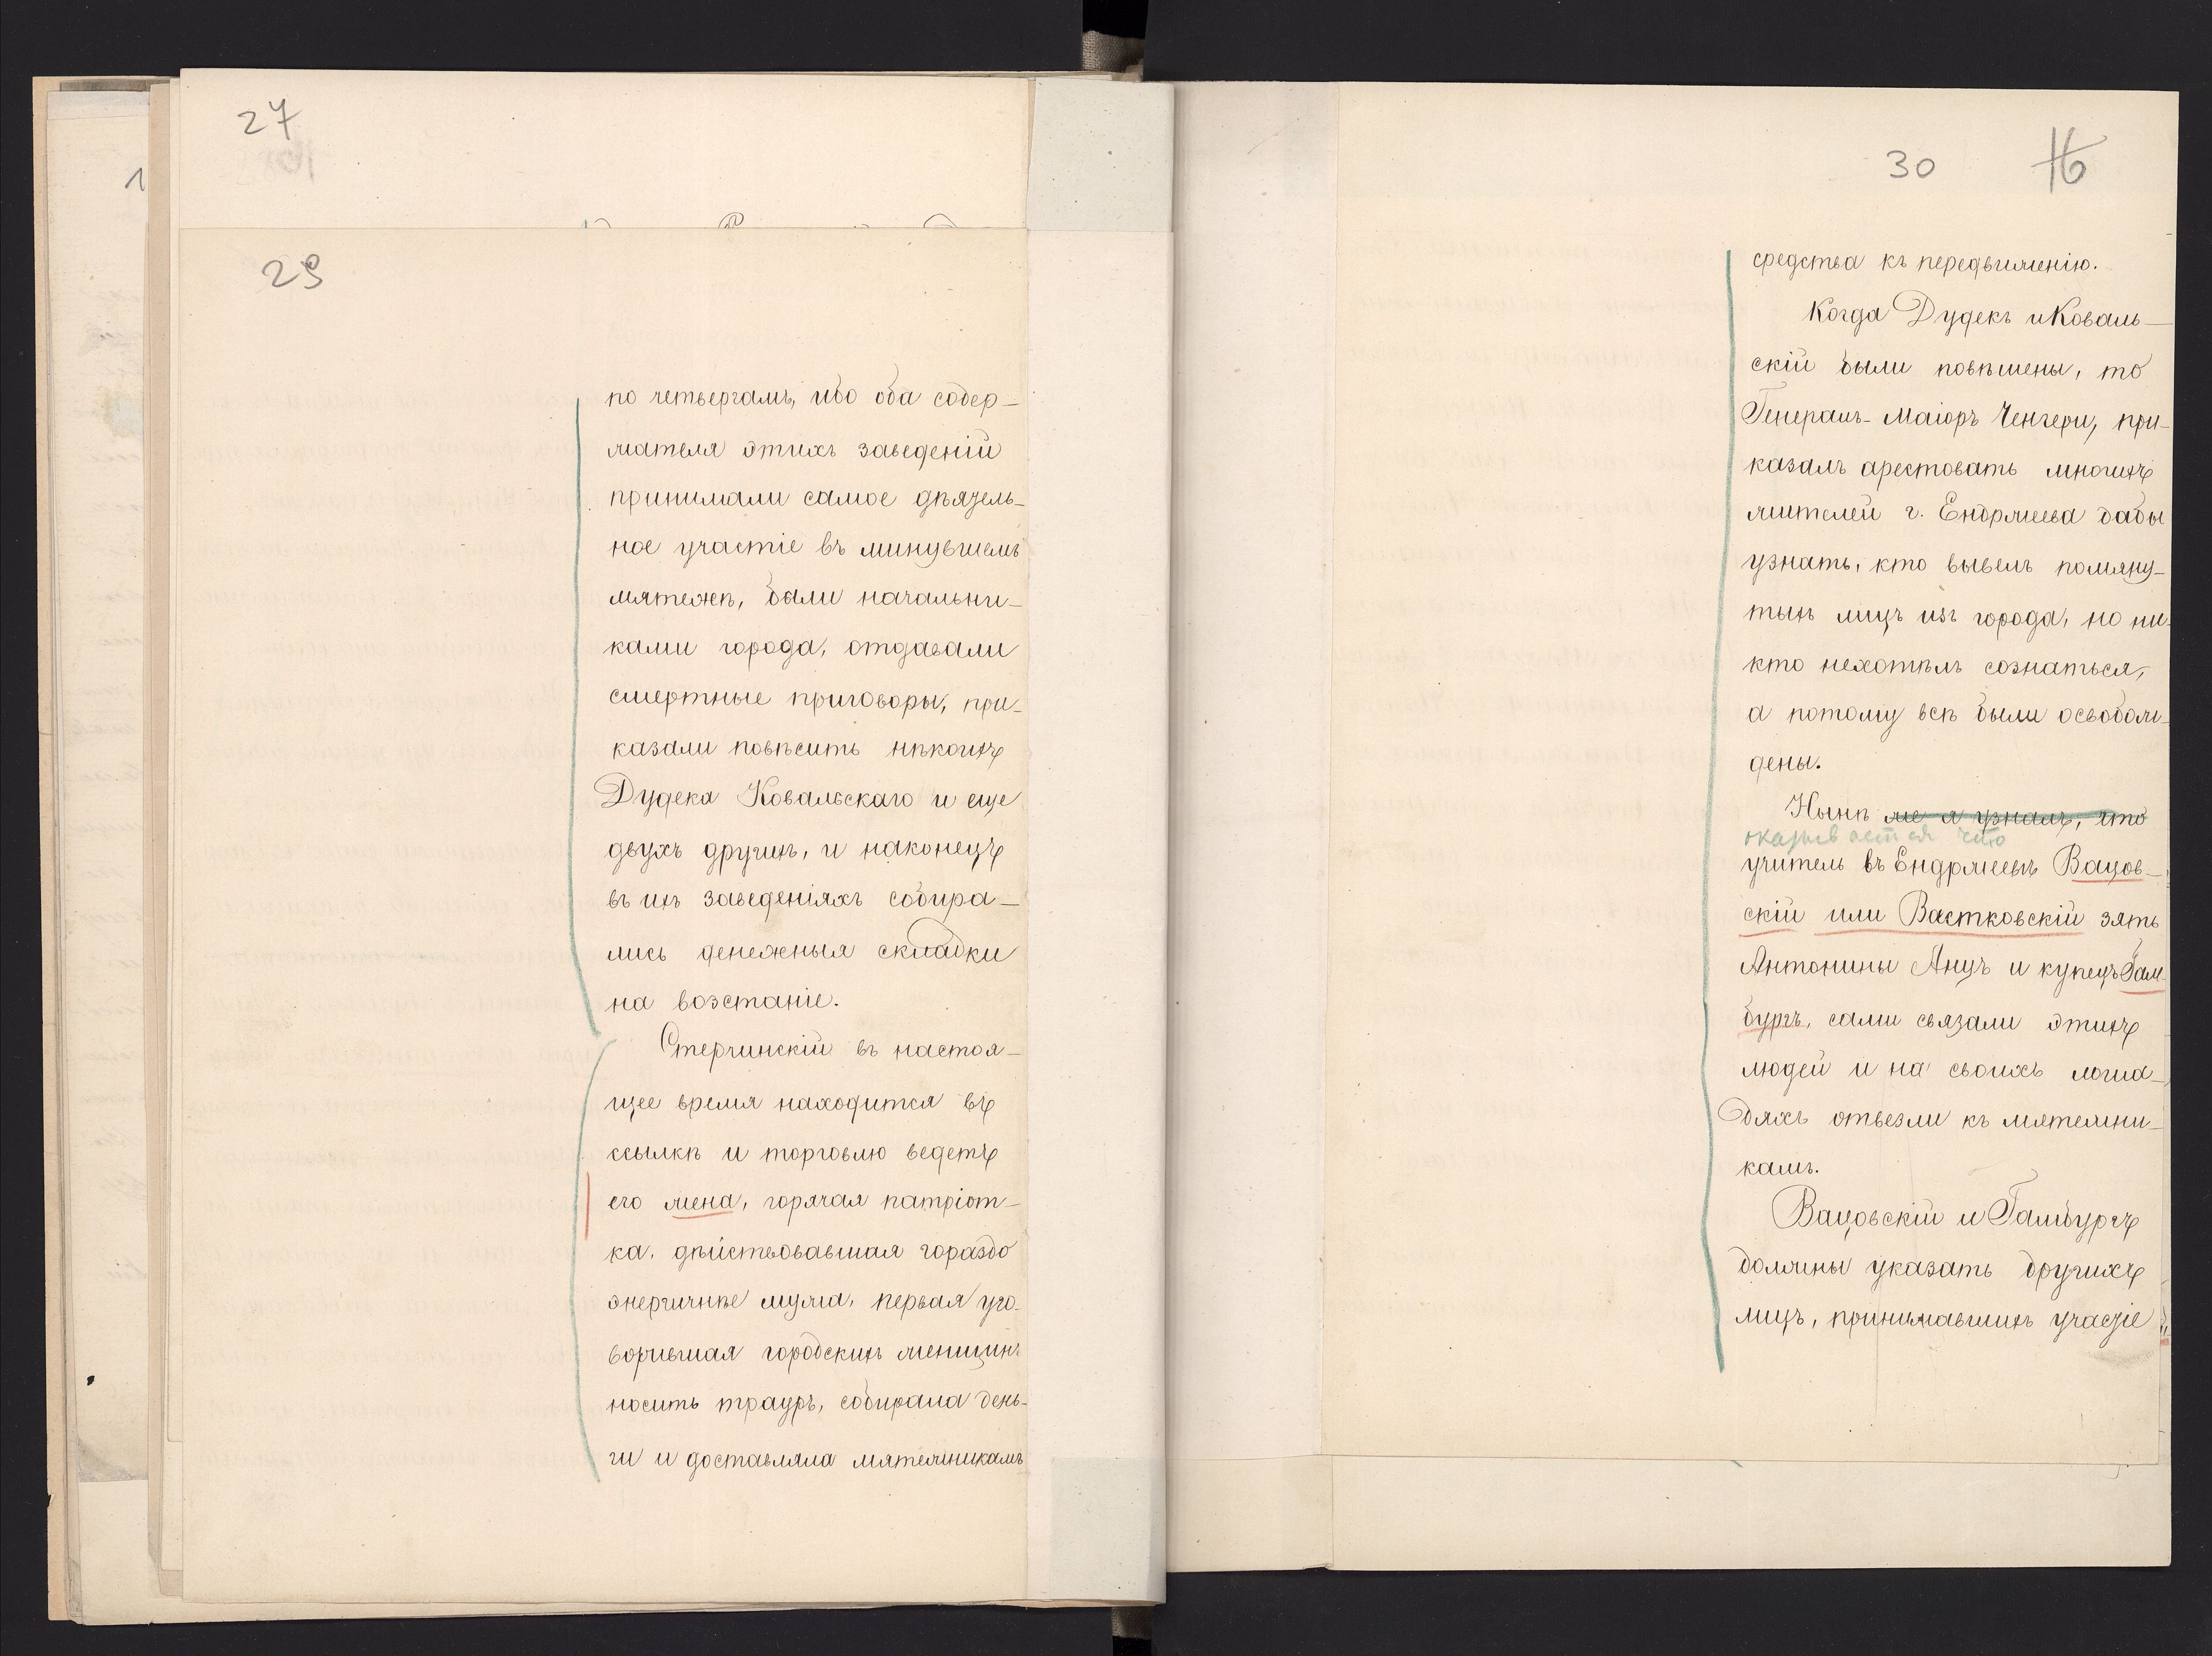 27
29
по четвергамъ, ибо оба содер-
жателя этихъ заведеній
принимали самое дѣятель-
ное участіе въ минувшемъ
мятежѣ, были начальни-
ками города, отдавали
смертные приговоры, при-
казали повѣсить нѣкоихъ
Дудека Ковальскаго и еще
двухъ другихъ, и наконецъ
въ ихъ заведеніяхъ собира-
лись денежныя складки
на возстаніе.
Стерчинскій въ настоя-
щее время находится въ
ссылкѣ и торговлю ведетъ
его жена, горячая патріот-
ка, дѣйствовавшая гораздо
энергичнѣе мужа, первая уго-
ворившая городскихъ женщинъ
носить трауръ, собирала день-
ги и доставляла мятежникамъ
30 16
средства къ передвиженію.
Когда Дудекъ и Коваль-
скій были повѣшены, то
Генералъ-Маіоръ Ченгери, при-
казалъ арестовать многихъ
жителей г. Ендржеева дабы
узнать, кто вывелъ помяну-
тыхъ лицъ изъ города, но ни-
кто нехотѣлъ сознаться,
а потому всѣ были освобож-
дены.
Нынѣ же я узналъ, что
оказывается что
учитель въ Ендржеевѣ Вацов-
скій или Вастковскій зять
Антонины Анцъ и купецъ Гам-
бургъ, сами связали этихъ
людей и на своихъ лоша-
дяхъ отвезли къ мятежни-
камъ.
Вацовскій и Гамбургъ
должны указать другихъ
лицъ, принимавшихъ участіе